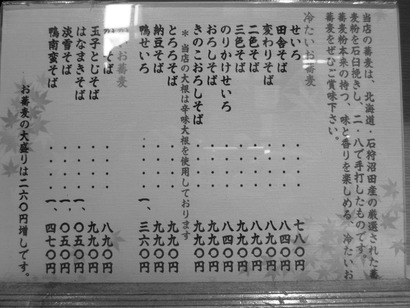 当店の蕎麦は、北海道・石狩沼田産の厳選された蕎
麦粉を石臼挽きし、二・八で手打したものです。
蕎麦粉本来の持つ、味と香りを楽しめる、冷たいお
蕎麦をぜひご賞味下さい。
冷たいお蕎麦
せいろ・・・・・七八〇円
田舎そば・・・・・八四〇円
変わりそば・・・・・九九〇円
二色そば
三色そば
のりかけせいろ
おろしそば
きのこおろしそば
＊当店の大根は辛味大根を使用しております
とろろそば・・・・・九九〇円
納豆そば・・・・・九九〇円
鴨せいろ・・・・・一、三六〇円
お蕎麦
そば・・・・・八九〇円
玉子とじそば・・・・・九九〇円
はなまきそば・・・・・一、〇五〇円
淡雪そば・・・・・一、〇五〇円
鴨南蛮そば・・・・・一、四七〇円
お蕎麦の大盛りは二六〇円増しです。